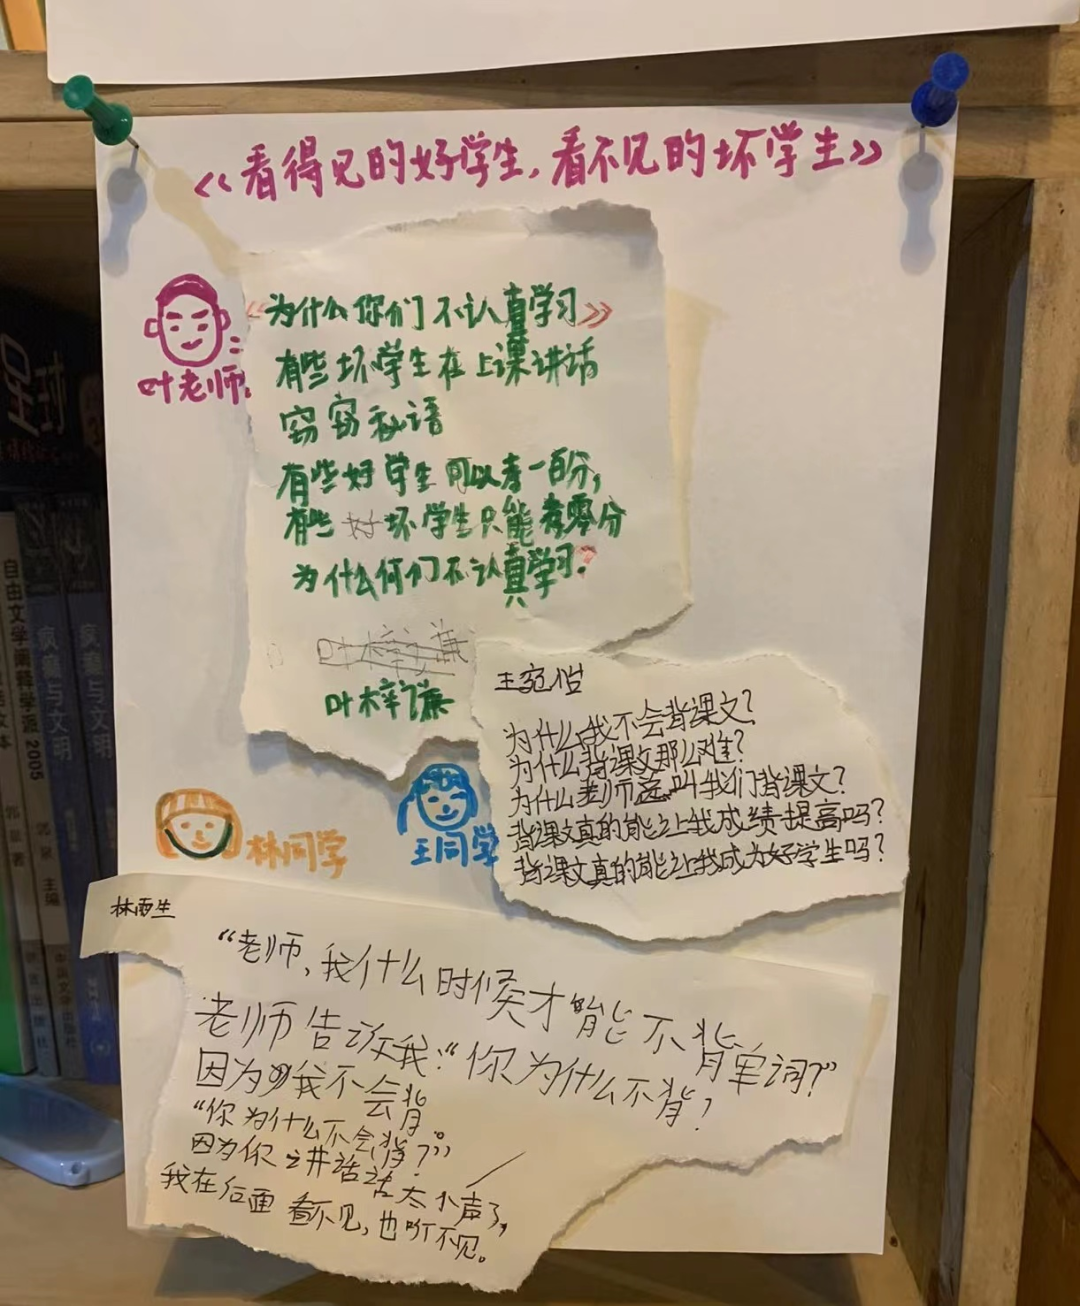 《看得见的好学生,看不见的坏学生》
叶老师:
《为什么你们不认真学习》
有些坏学生在上课讲话
窃窃私语
有些好学生可以考一百分,
有些坏学生只能考零分
为什么你们不认真学习?
叶梓谦
叶梓谦
王宛怡
为什么我不会背课文?
为什么背课文那么难?
为什么老师总叫我们背课文?
背课文真的能让我成绩提高吗?
背课文真的能让我成为好学生吗?
林同学
王同学
林雨生
“老师,我什么时候才能不背单词?”
老师告诉我:“你为什么不背?
因为我不会背
“你为什么不会背?”
因为你讲话话太小声了,
我在后面看不见,也听不见。
自由文学阐释学派2005
疯癫与文明
疯癫与文明
主编